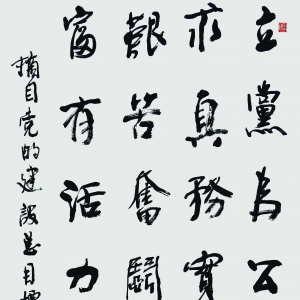 立黨為公
求真務實
艱苦奮鬭
富有活力
摘自党的建設总目標